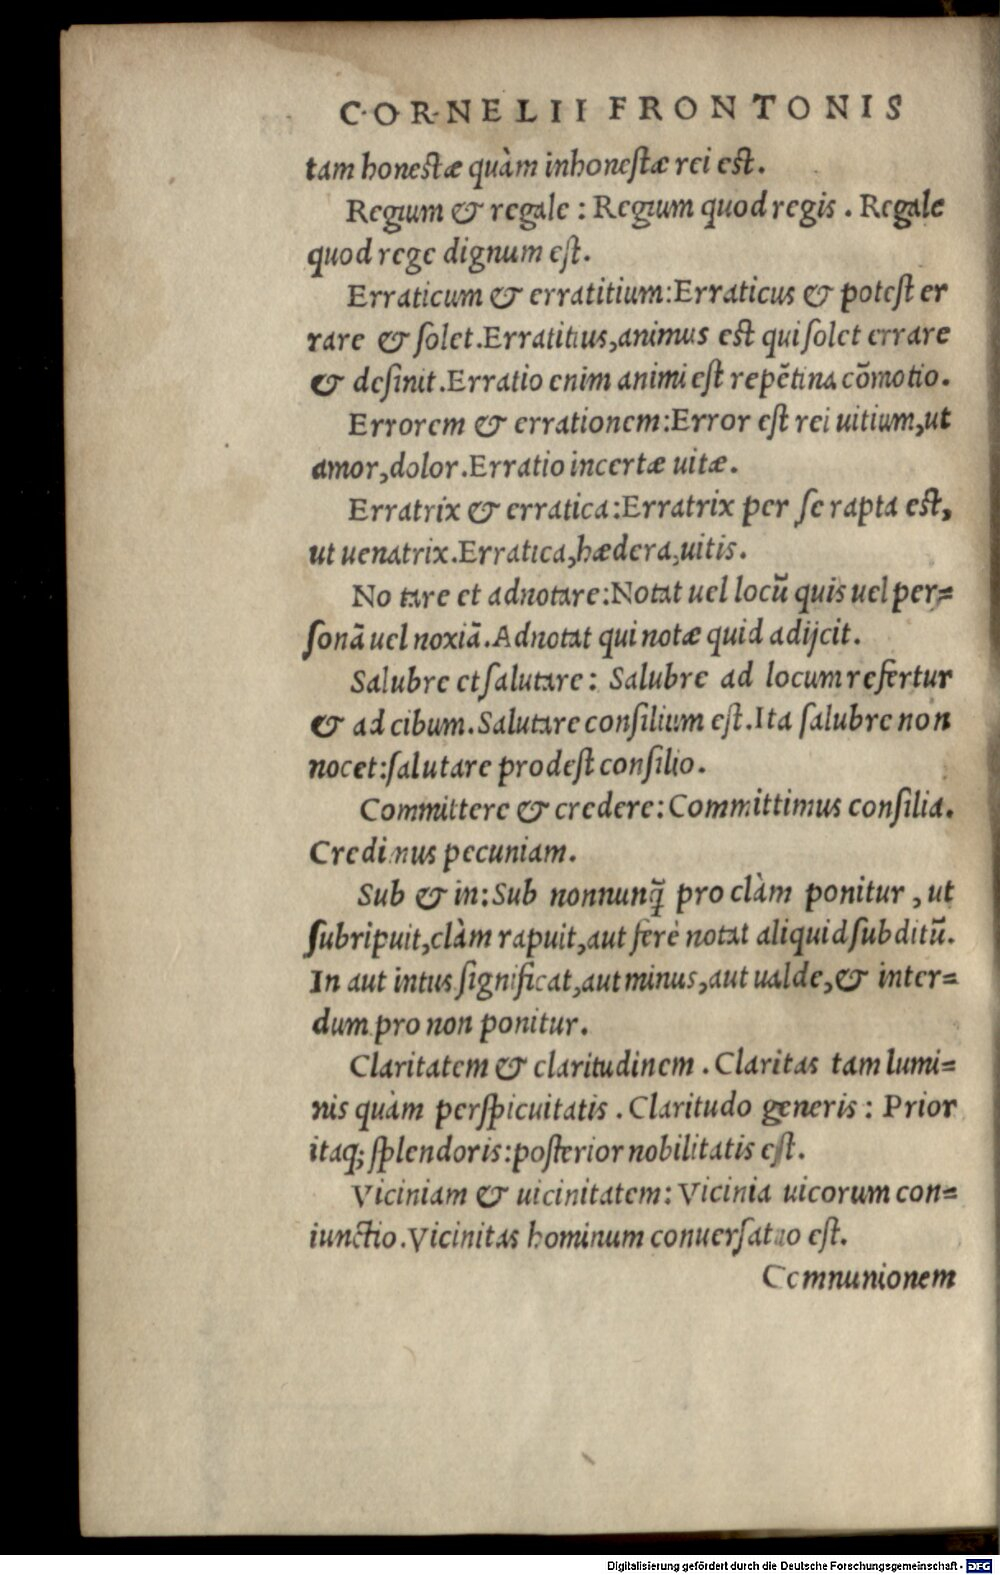 C·O·R·NELII FRONTONIS
tam honestæ quàm inhoneſtæ rei est.
Regium & regale : Regium quod regis . Regale
quod rege dignum eſt.
Erraticum & erratitium:Erraticus & poteſt er
rare & ſolet.Erratitius,animus est qui ſolet errare
& deſinit.Erratio enim animi eſt repẽtina cõmotio.
Errorem & errationem:Error eſt rei uitium,ut
amor,dolor.Erratio incertæ uitæ.
Erratrix & erratica:Erratrix per ſe rapta est,
ut uenatrix.Erratica,hædera,uitis.
No tare et adnotare:Notat uel locũ quis uel per=
ſonã uel noxiã.Adnotat qui notæ quid adijcit.
Salubre et ſalutare: Salubre ad locum refertur
& ad cibum.Salutare conſilium eſt.Ita ſalubre non
nocet:ſalutare prodeſt conſilio.
Committere & credere:Committimus conſilia.
Credimus pecuniam.
Sub & in:Sub nonnunq̃ pro clàm ponitur , ut
ſubripuit,clàm rapuit,aut ferè notat aliquid ſubditũ.
In aut intus ſignificat,aut minus,aut ualde,& inter=
dum pro non ponitur.
Claritatem & claritudinem . Claritas tam lumi=
nis quàm perſpicuitatis . Claritudo generis : Prior
itaq; ſplendoris:poſterior nobilitatis eſt.
Viciniam & uicinitatem: Vicinia uicorum con=
iunctio.Vicinitas hominum conuerſatio eſt.
Comnunionem
Digitalisierung gefördert durch die Deutsche Forschungsgemeinschaft - DFG